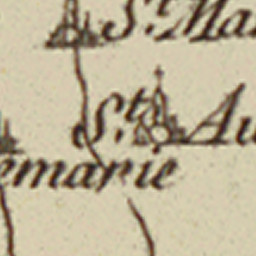 S.t Ma
S.te Au
emarie